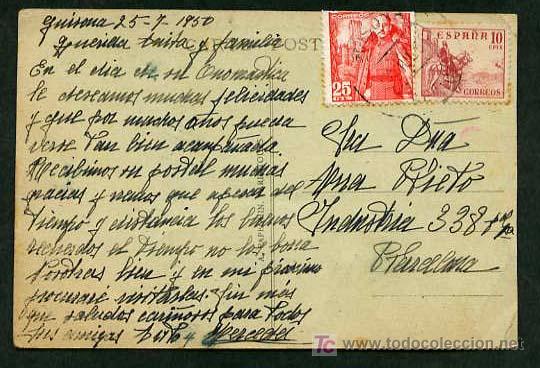 25-7-1950
Querida Anita y familia
En el dia de su Onomástica
le deseamos muchas felicidades
y que por muchos años pueda
verse tan bien acompañada
Recibimos su postal muchas
gracias y vemos que apesar del
tiempo y distancia los buenos
recuerdos el tiempo no los borra
bien y en mi próximo
procuraré visitarlas. Sin más
que saludos cariñosos para todos
sus amigas y Mercedes
CORREOS
25
CTS
ESPAÑA 10
CTS
CORREOS
POST
Sra Dña
Ana Prieto
Industria 338
Barcelona
TC todocoleccion.net